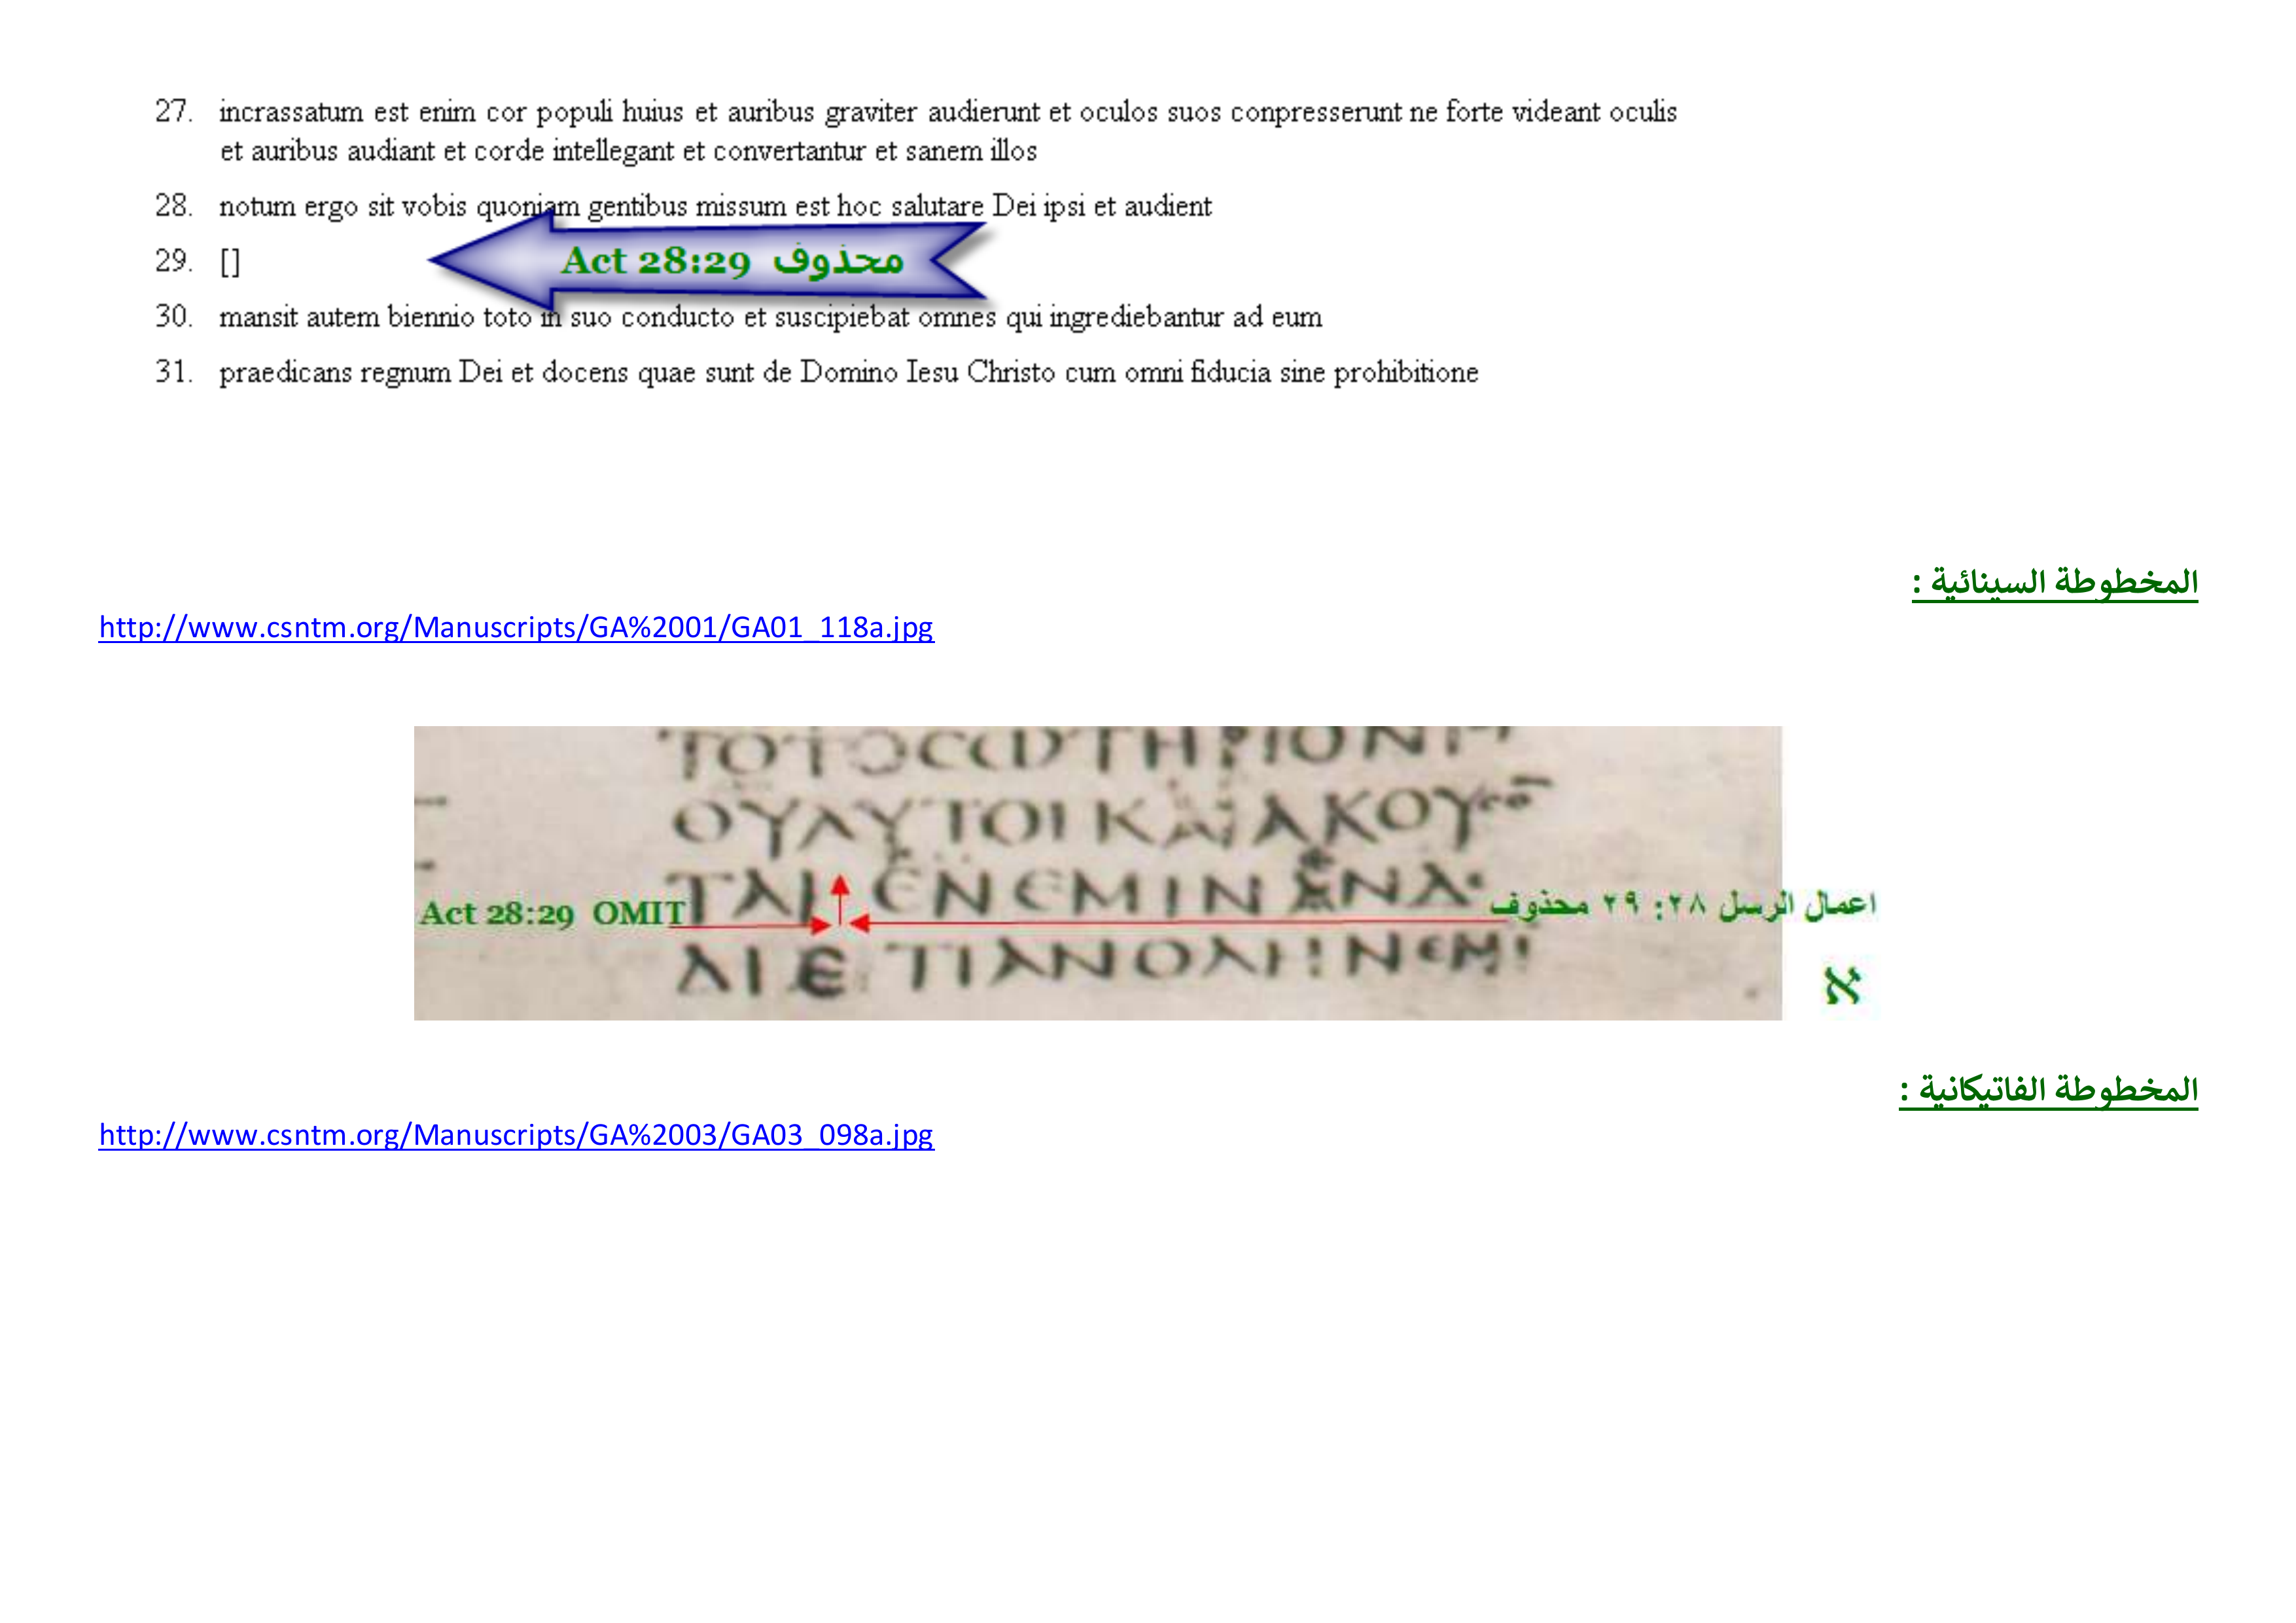 27. incrassatum est enim cor populi huius et auribus graviter audierunt et oculos suos conpresserunt ne forte videant oculis
et auribus audiant et corde intellegant et convertantur et sanem illos
28. notum ergo sit vobis quoniam gentibus missum est hoc salutare Dei ipsi et audient
29. []
Act 28:29 محذوف
30. mansit autem biennio toto in suo conducto et suscipiebat omnes qui ingrediebantur ad eum
31. praedicans regnum Dei et docens quae sunt de Domino Iesu Christo cum omni fiducia sine prohibitione
المخطوطة السينائية :
http://www.csntm.org/Manuscripts/GA%2001/GA01_118a.jpg
ΤΟΤΟCΩΤΗΡΙΟΝ
ΟΥΑΥΤΟΙΚΑΙΑΚΟΥ
ΤΑΙ ΕΝΕΜΙΝ
Act 28:29 OMIT
اعمال الرسل ٢٨: ٢٩ محذوف
ΔΙΕΤΙΑΝΟΛΗΝΕΜΙ
א
المخطوطة الفاتيكانية :
http://www.csntm.org/Manuscripts/GA%2003/GA03_098a.jpg